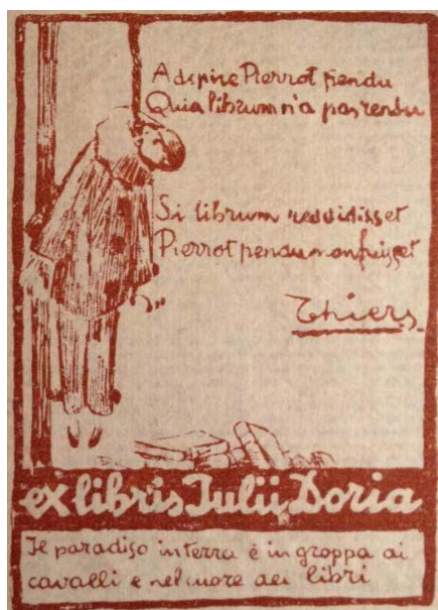 Adspice Pierrot pendu
Quia librum n'a pas rendu
Si librum reddidisset
Pierrot pendu non fuisset
Thiers
ex libris Julii Doria
Il paradiso in terra è in groppa ai
cavalli e nel cuore dei libri